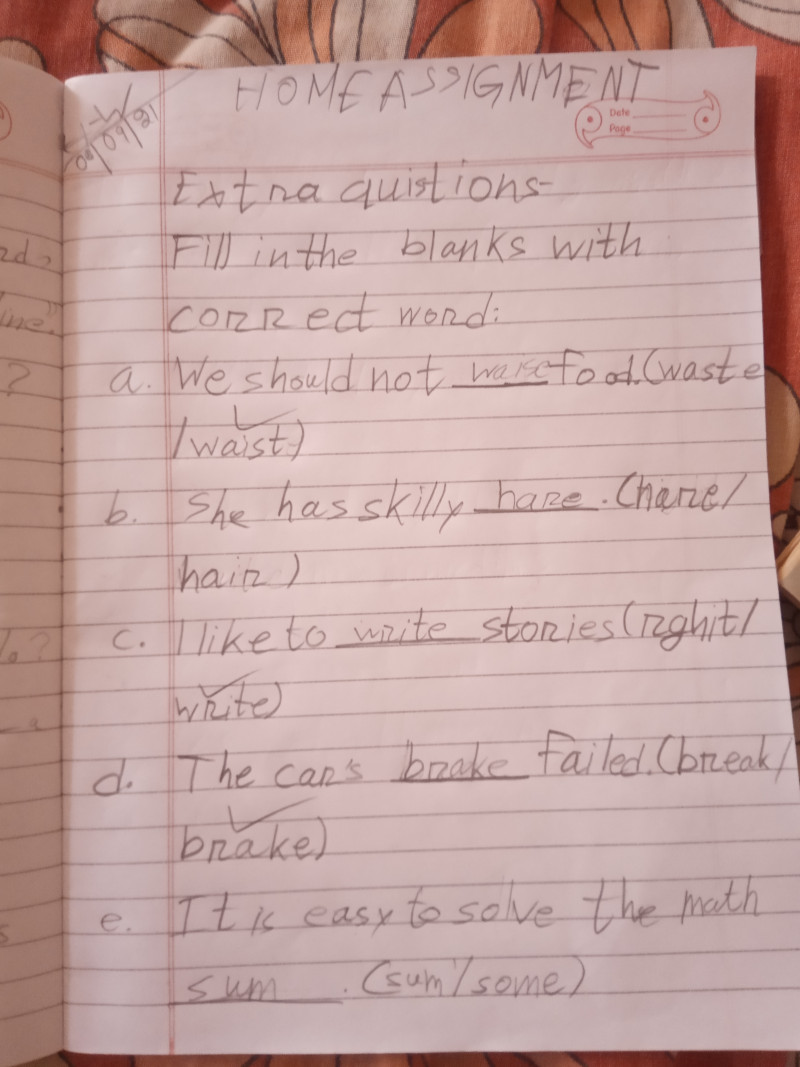 HOME ASSIGNMENT
08/09/21
Date
Page
Extra quistions-
Fill in the blanks with
correct word:
a. We should not waise food. (waste
/waist)
b. She has skilly hare. (hare/
hair)
c. I like to write stories (rghit/
write)
d. The car's brake failed. (break/
brake)
e. It is easy to solve the math
sum. (sum/some)
rd?
ine."
?
?
a
s